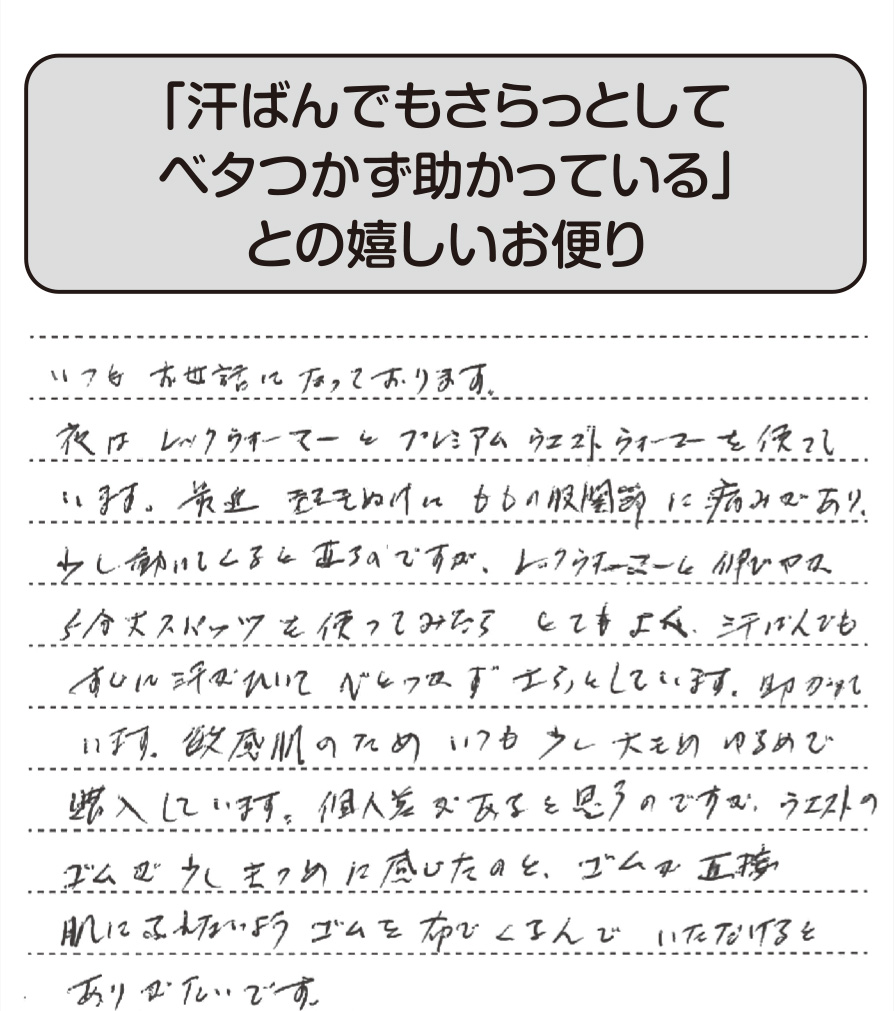 「汗ばんでもさらっとして
ベタつかず助かっている」
との嬉しいお便り
いつもお世話になっております。
夜はレックウォーマーとプレミアムウエストウォーマーを使って
います。最近 ぬけに ももの股関節に痛みがあり、
少し動いてくると直るのですが、レックウォーマーと伸びやか
5分丈スパッツを使ってみたら とてもよく、汗ばんでも
すぐに汗がひいて べとつかず さらっとしています。助かって
います。敏感肌のため いつも 少し大きめ ゆるめで
購入しています。個人差があると思うのですが、ウエストの
ゴムが少しきつめに感じたのと、ゴムが直接
肌にふれないよう ゴムを布でくるんで いただけると
ありがたいです。